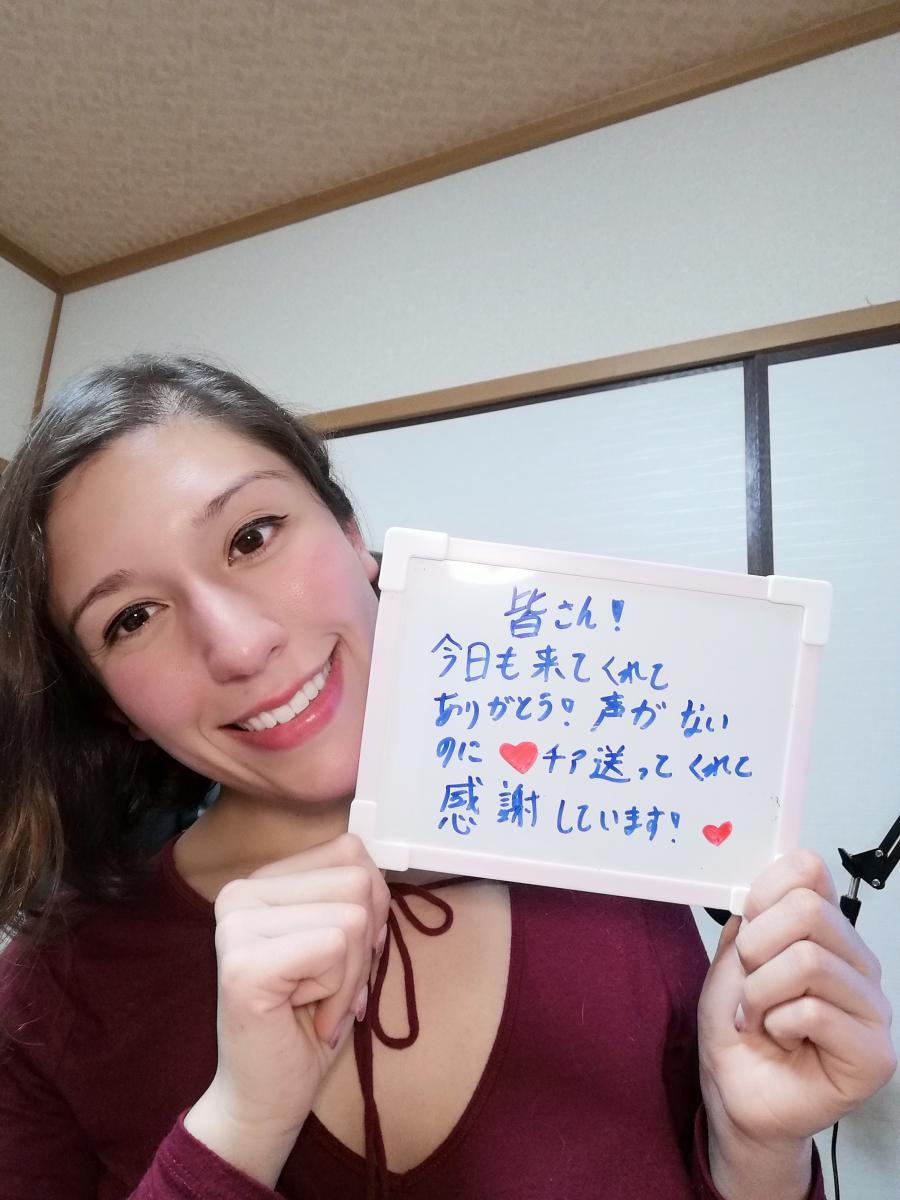 皆さん!
今日も来てくれて
ありがとう! 声がない
のに ❤チア送ってくれて
感謝しています! ❤